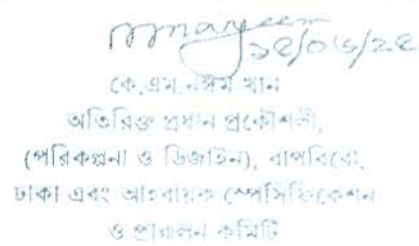 ১৫/০৬/২২
কে.এম.নঈম খান
অতিরিক্ত প্রধান প্রকৌশলী,
(পরিকল্পনা ও ডিজাইন), বাপবিবো,
ঢাকা এবং আহবায়ক স্পেসিফিকেশন
ও প্রাক্কলন কমিটি